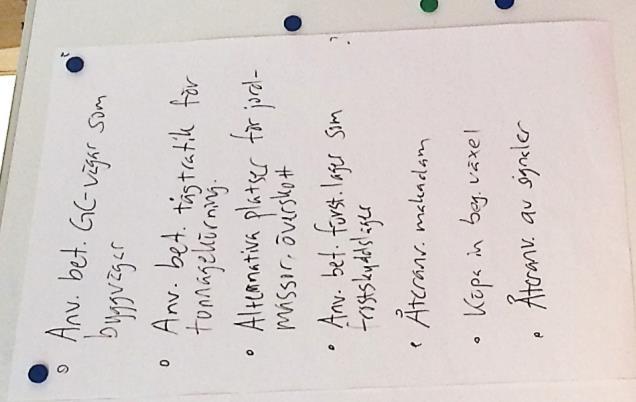 • Anv. bet. GC-vägar som
byggvägar
• Anv. bet. tågtrafik för
tonnagekörning.
• Alternativa platser för jord-
massor, överskott
• Anv. bef. förstl. lager som
frostskyddslager
• Återanv. makadam
• Köpa in beg. växel
• Återanv. av signaler